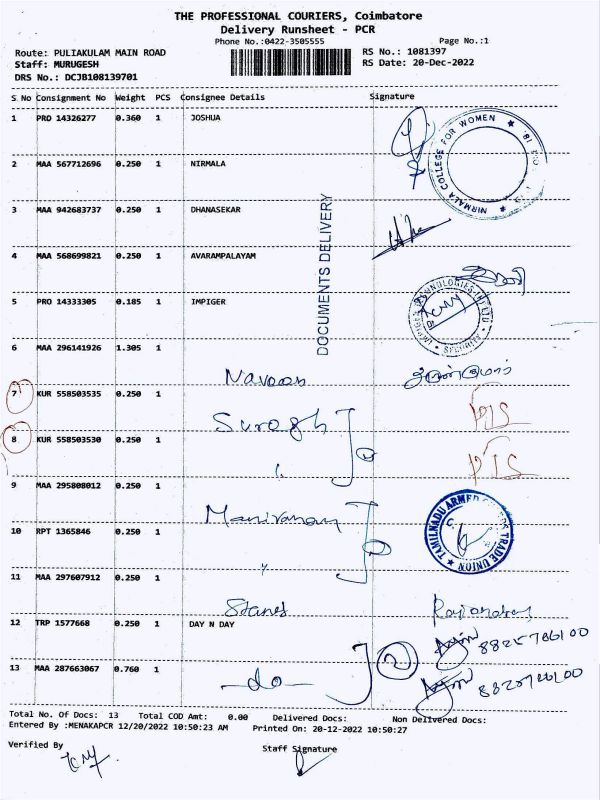 THE PROFESSIONAL COURIERS, Coimbatore
Delivery Runsheet - PCR
Phone No.:0422-3505555
Page No.:1
Route: PULIAKULAM MAIN ROAD
RS No.: 1081397
Staff: MURUGESH
RS Date: 20-Dec-2022
DRS No.: DCJB108139701
S No Consignment No Weight PCS Consignee Details Signature
1 PRO 14326277 0.360 1 JOSHUA
NIRMALA COLLEGE FOR WOMEN
2 MAA 567712696 0.250 1 NIRMALA
3 MAA 942683737 0.250 1 DHANASEKAR
DOCUMENTS DELIVERY
4 MAA 568699821 0.250 1 AVARAMPALAYAM
5 PRO 14333305 0.185 1 IMPIGER
6 MAA 296141926 1.305 1
Naveen
7 KUR 558503535 0.250 1
PTS
8 KUR 558503530 0.250 1
PTS
9 MAA 295808012 0.250 1
TAMILNADU ARMED TRADE UNION
10 RPT 1365846 0.250 1
11 MAA 297607912 0.250 1
Stanes
12 TRP 1577668 0.250 1 DAY N DAY
13 MAA 287663067 0.760 1
-do-
Total No. Of Docs: 13 Total COD Amt: 0.00 Delivered Docs: Non Delivered Docs:
Entered By :MENAKAPCR 12/20/2022 10:50:23 AM Printed On: 20-12-2022 10:50:27
Verified By Staff Signature